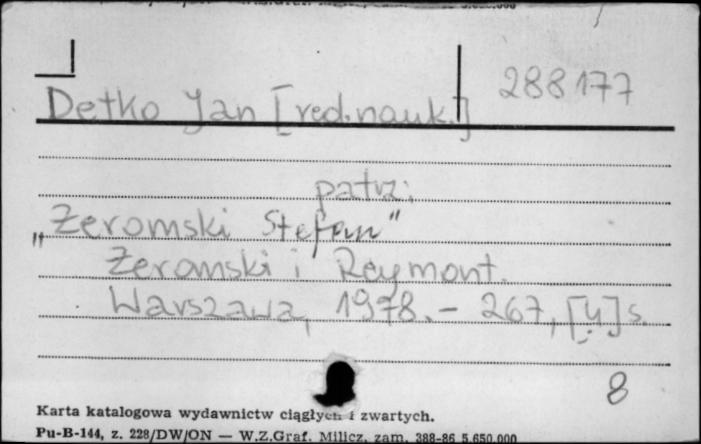 288177
Detko Jan [red.nauk.]
patrz:
"Żeromski Stefan"
Żeromski i Reymont.
Warszawa, 1978. - 267, [4] s.
8
Karta katalogowa wydawnictw ciągłych i zwartych.
Pu-B-144, z. 228/DW/ON — W.Z.Graf. Milicz, zam. 388-86 5.650.000